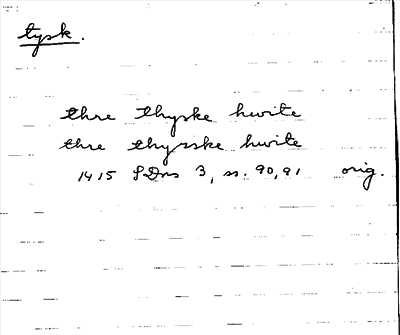 tysk.
thre thyske hwite
thre thysske hwite
1415 SDns 3, ss. 90, 91 orig.